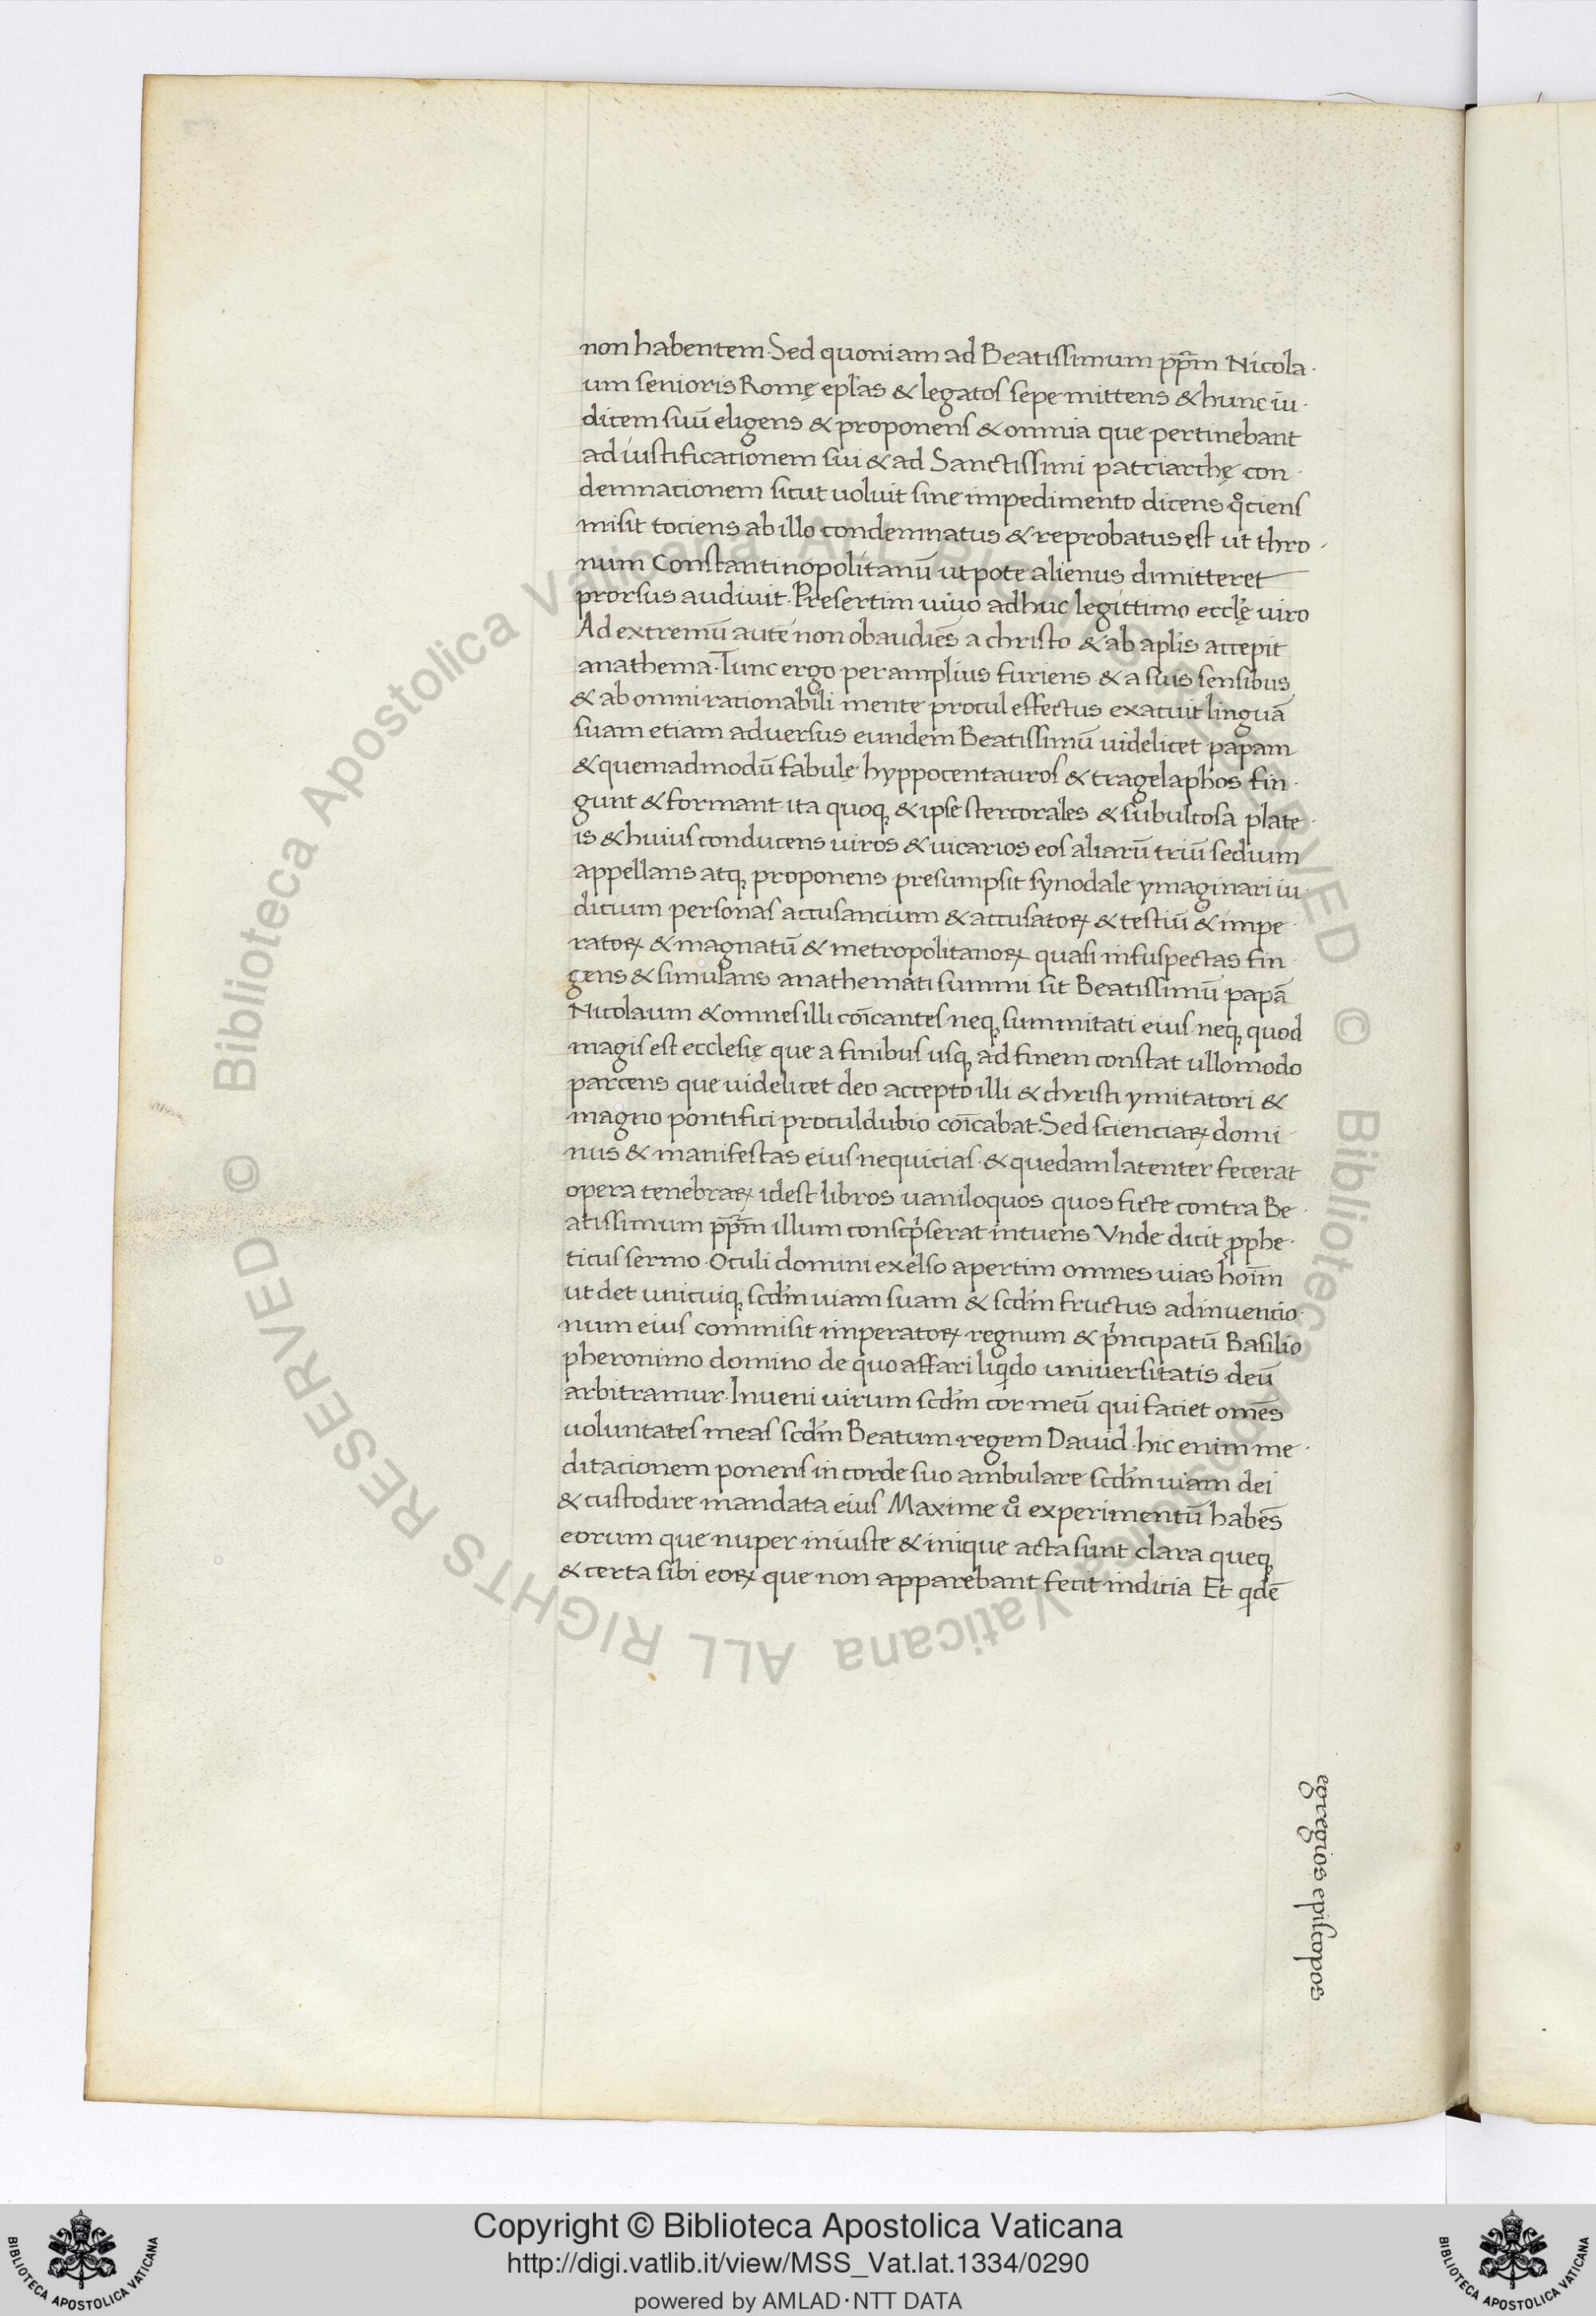 non habentem. Sed quoniam ad Beatissimum pp̄m Nicola-
um senioris Romę epl̄as & legatos sepe mittens & hunc iu-
dicem suū eligens & proponens & omnia que pertinebant
ad iustificationem sui & ad Sanctissimi patriarchę con-
demnationem sicut uoluit sine impedimento dicens qͦciens
misit tociens ab illo condemnatus & reprobatus est ut thro-
num Constantinopolitanū ut pote alienus dimitteret
prorsus audiuit. Presertim uiuo adhuc legittimo eccl̄ę uiro
Ad extremū autē non obaudiēs a christo & ab apl̄is accepit
anathema. Tunc ergo per amplius furiens & a suis sensibus
& ab omni rationabili mente procul effectus exacuit linguā
suam etiam aduersus eundem Beatissimū uidelicet papam
& quemadmodū fabulę hyppocentauros & tragelaphos fin-
gunt & formant ita quoq; & ipse stercorales & subulcosa plate-
is & huius conducens uiros & uicarios eos aliarū triū sedium
appellans atq; proponens presumpsit synodale ymaginari iu-
dicium personas accusancium & accusatoꝝ & testiū & impe-
ratoꝝ & magnatū & metropolitanoꝝ quasi insuspectas fin-
gens & simulans anathemati summi sit Beatissimū papā
Nicolaum & omnes illi cōīcantes neq; summitati eius neq; quod
magis est ecclesię que a finibus usq; ad finem constat ullomodo
parcens que uidelicet deo accepto illi & christi ymitatori &
magno pontifici proculdubio cōīcabat. Sed scienciaꝝ domi-
nus & manifestas eius nequicias & quedam latenter fecerat
opera tenebraꝝ idest libros uaniloquos quos ficte contra Be-
atissimum pp̄m illum conscp̍serat intuens. Vnde dicit ꝓphe-
ticus sermo. Oculi domini exelso apertim omnes uias hoīm
ut det unicuiq; scd̄m uiam suam & scd̄m fructus adinuencio-
num eius commisit imperatoꝝ regnum & p̍ncipatū Basilio
pheronimo domino de quo affari liq̍do uniuersitatis deū
arbitramur. Inueni uirum scd̄m cor meū qui faciet omēs
uoluntates meas scd̄m Beatum regem Dauid. hic enim me-
ditacionem ponens in corde suo ambulare scd̄m uiam dei
& custodire mandata eius Maxime uͦ experimentū habēs
eorum que nuper iniuste & inique acta sunt clara queq;
& certa sibi eoꝝ que non apparebant fecit indicia Et q̍dē
egregios episcopos
© Biblioteca Apostolica Vaticana ALL RIGHTS RESERVED © Biblioteca Apostolica Vaticana ALL RIGHTS RESERVED
Copyright © Biblioteca Apostolica Vaticana
http://digi.vatlib.it/view/MSS_Vat.lat.1334/0290
powered by AMLAD·NTT DATA
BIBLIOTECA APOSTOLICA VATICANA
BIBLIOTECA APOSTOLICA VATICANA